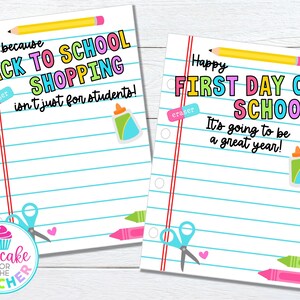 because
CK TO SCHOOL
SHOPPING
isn't just for students!
eraser
Happy
FIRST DAY O
SCHOO
It's going to be
a great year!
eraser
cake
FOR
THE
CHER